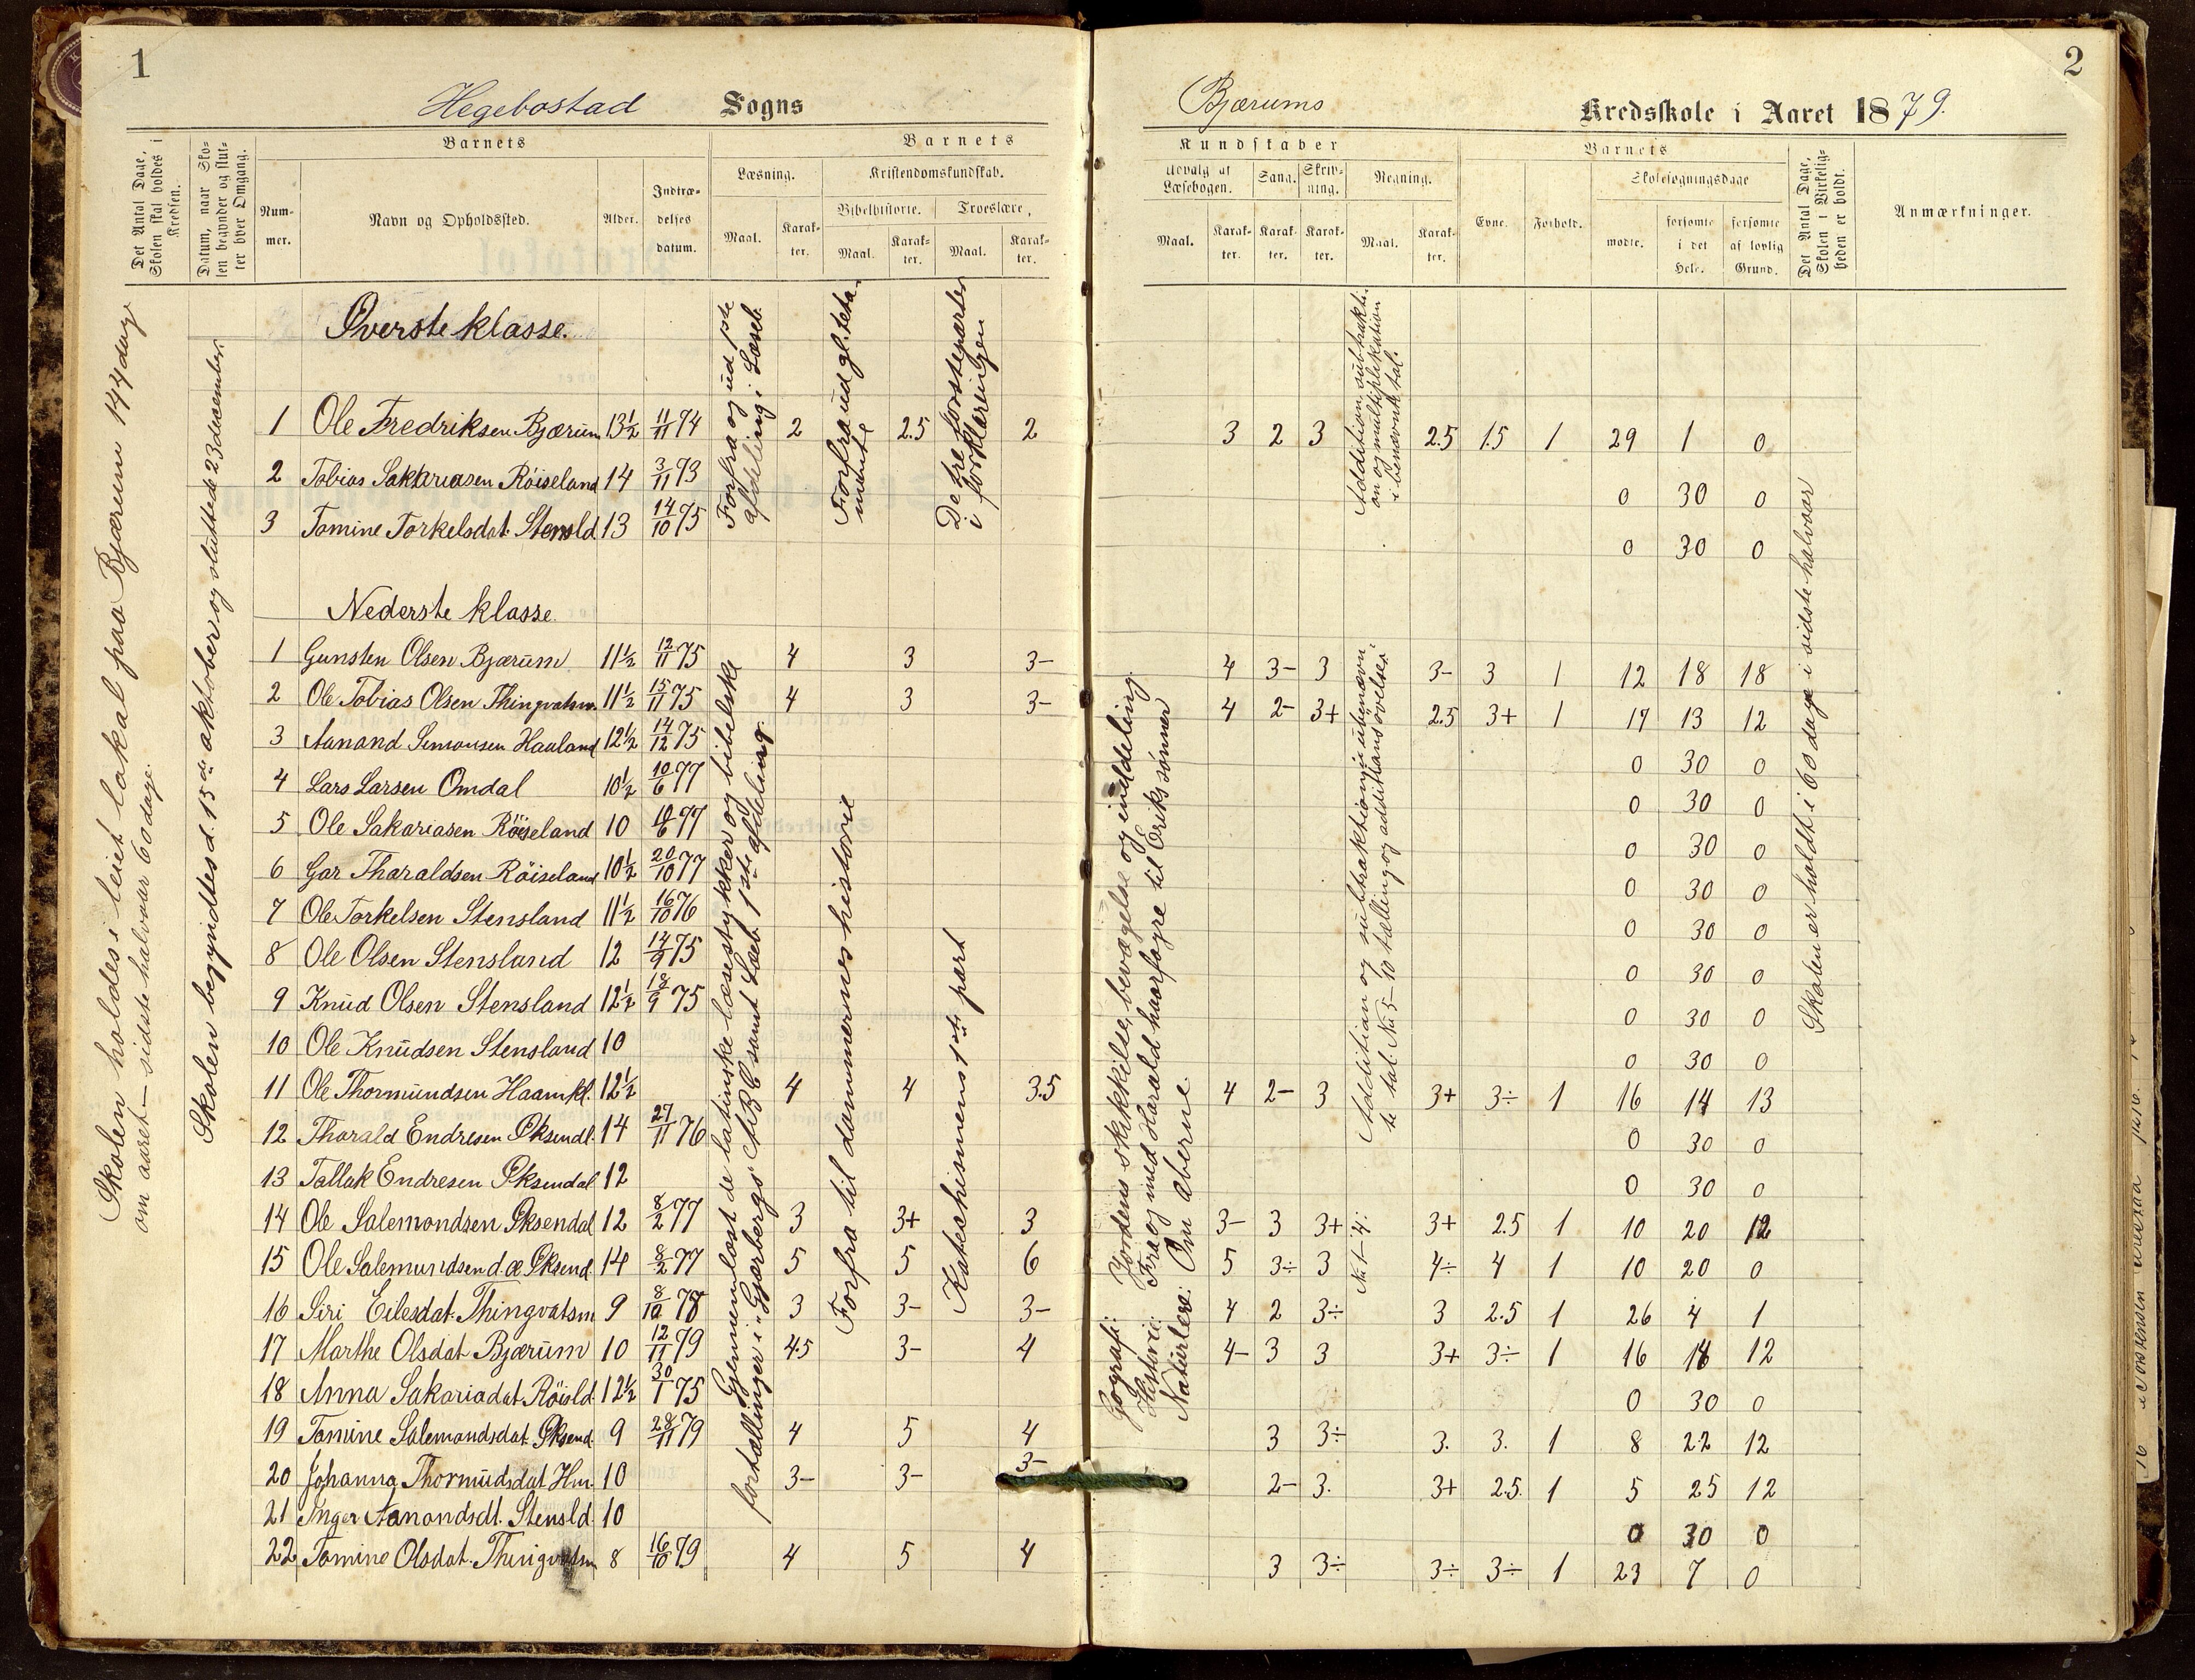 1
Hegebostad Sogns
Det Antal Dage, Skolen skal holdes i Kredsen.
Datum, naar Skolen begynder og slutter hver Omgang.
Barnets
Nummer.
Navn og Opholdssted.
Alder.
Indtrædelses datum.
Barnets
Læsning.
Maal.
Karakter.
Kristendomskundskab.
Bibelhistorie.
Maal.
Karakter.
Troeslære,
Maal.
Karakter.
Skolen holdes i leiet lokal paa Bjærum 144 dage
om aaret – sidste halvaar 60 dage.
Skolen begyndtes d. 15de oktober og sluttede 23 december.
Øverste klasse.
Forfra og ud 1ste
afdeling i Læseb.
Forfra ud gl. testa-
mente
De tre første parter
i forklaringen
1 Ole Fredriksen Bjærum 13½ 11/11 74 2 2.5 2
2 Tobias Sakkariasen Röiseland 14 3/11 73
3 Tomine Torkelsdat. Stensld 13 14/10 75
Nederste klasse.
1 Gunsten Olsen Bjærum 11½ 12/11 75 4 3 3-
2 Ole Tobias Olsen Thingvatsm. 11½ 15/11 75 4 3 3-
3 Aanand Simonsen Hauland 12½ 14/12 75
4 Lars Larsen Omdal 10½ 10/6 77
5 Ole Sakariasen Röiseland 10 10/6 77
6 Gar Tharaldsen Röiseland 10½ 20/10 77
7 Ole Torkelsen Stensland 11½ 16/10 76
8 Ole Olsen Stensland 12 14/9 75
9 Knud Olsen Stensland 12½ 18/9 75
10 Ole Knudsen Stensland 10
11 Ole Thormundsen Haamkl. 12½ 4 4 3.5
12 Tharald Endresen Øksendl. 14 27/11 76
13 Tallak Endresen Øksendal 12
14 Ole Salemondsen Øksendal 12 8/2 77 3 3+ 3
15 Ole Salemundsen d. æ Øksend. 14 8/2 77 5 5 6
16 Siri Eilesdat. Thingvatsm 9 8/10 78 3 3- 3-
17 Marthe Olsdat Bjærum 10 12/11 79 4.5 3- 4
18 Anna Sakariadat Röisld. 12½ 30/1 75
19 Tomine Salemondsdat. Øksend. 9 28/11 79 4 5 4
20 Johanna Thormudsdat Hm. 10 3- 3- 3-
21 Inger Aanondsdt. Stensld. 10
22 Tomine Olsdat. Thingvatsm 8 16/10 79 4 5 4
Gjennemlæst de latinske læsestykker og bibelske
fortællinger i "Gjærbergs" ABC samt Læb. 1ste afdeling.
Forfra til dommernes historie
Katechismens 1ste part
2
Bjærums Kredsskole i Aaret 1879.
Kundskaber
Udvalg af Læsebogen.
Maal.
Karakter.
Sang.
Karakter.
Skrivning.
Karakter.
Regning.
Maal.
Karakter.
Barnets
Evne.
Forhold.
Skolesøgningsdage
mødte.
forsømte i det Hele.
forsømte af lovlig Grund.
Det Antal Dage, Skolen i Virkeligheden er holdt.
Anmærkninger.
Addition, subtrakti-
on og multiplikation
i benævnte tal.
3 2 3 2.5 1.5 1 29 1 0
0 30 0
0 30 0
Geografi: Jordens skikkelse, bevægelse og inddeling.
Historie: Fra og med Harald haarfagre til Eriks sønner
Naturlære: Om aberne.
Addition og subtraktion i ubenævn-
te tal. No 5–10 tælling og additionsøvelser
No 1–4.
Skolen er holdt i 60 dage i sidste halvaar
4 3- 3 3- 3 1 12 18 18
4 2- 3+ 2.5 3+ 1 17 13 12
0 30 0
0 30 0
0 30 0
0 30 0
0 30 0
0 30 0
0 30 0
0 30 0
4 2- 3 3+ 3÷ 1 16 14 13
0 30 0
0 30 0
3- 3 3+ 3+ 2.5 1 10 20 12
5 3÷ 3 4÷ 4 1 10 20 0
4 2 3÷ 3 2.5 1 26 4 1
4- 3 3 3+ 3÷ 1 16 14 12
0 30 0
3 3÷ 3. 3. 1 8 22 12
2- 3. 3+ 2.5. 1 5 25 12
0 30 0
3 3÷ 3÷ 3÷ 1 23 7 0